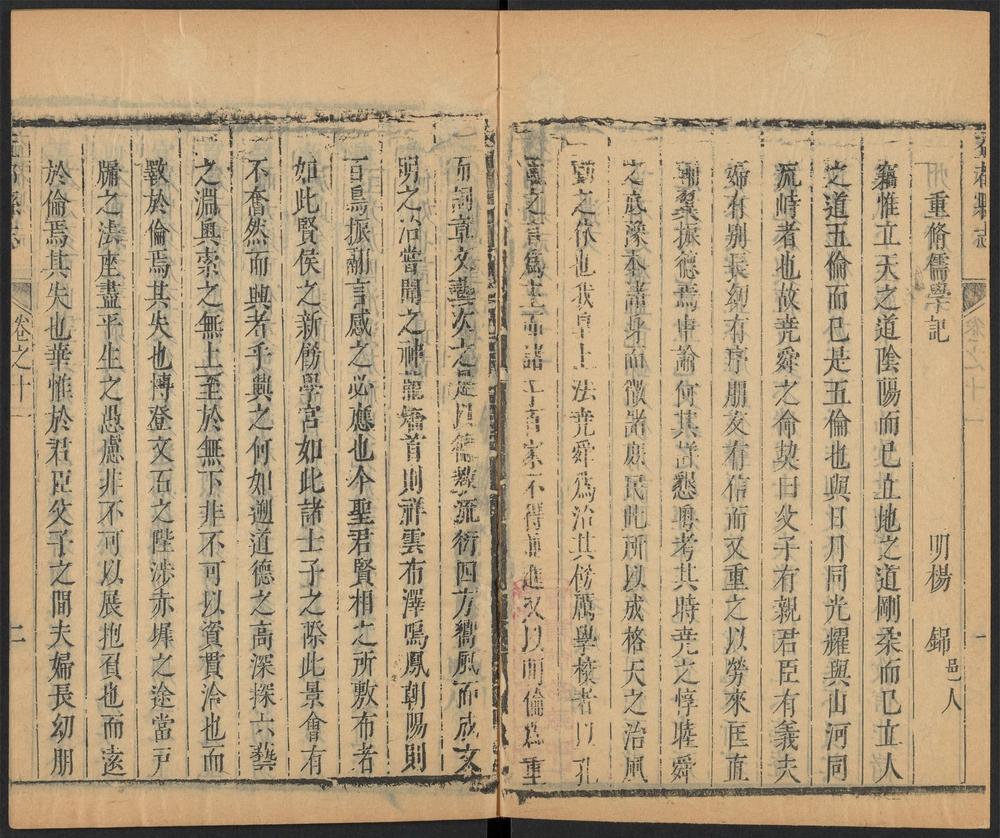 重脩儒學記　　明楊　錦邑人
竊惟立天之道陰陽而已立地之道剛柔而已立人
之道五倫而已是五倫也與日月同光耀與山河同
流峙者也故堯舜之命契曰父子有親君臣有義夫
婦有別長幼有序朋友有信而又重之以勞來匡直
輔翼振德焉申諭何其詳懇粵考其時堯之惇睦舜
之底豫本諸身而徵諸庶民此所以成格天之治風
動之休也我皇上法堯舜為治其飭厲學校者以孔
孟之言為主而諸子百家不得兼進又以明倫為重
而詞章文藝次之是以德教流衍四方嚮風而成文
明之治嘗聞之神龍驤首則祥雲布澤鳴鳳朝陽則
百鳥振翮言感之必應也今聖君賢相之所敷布者
如此賢侯之新飭學宮如此諸士子之際此景會有
不奮然而興者乎興之何如遡道德之高深探六藝
之淵奧索之無上至於無下非不可以資貫洽也而
斁於倫焉其失也愽登文石之陛涉赤墀之途當戸
牖之法座盡平生之愚慮非不可以展抱負也而遠
於倫焉其失也華惟於君臣父子之間夫婦長幼朋
益都縣志
卷之十
一
益都縣志
卷之十
二